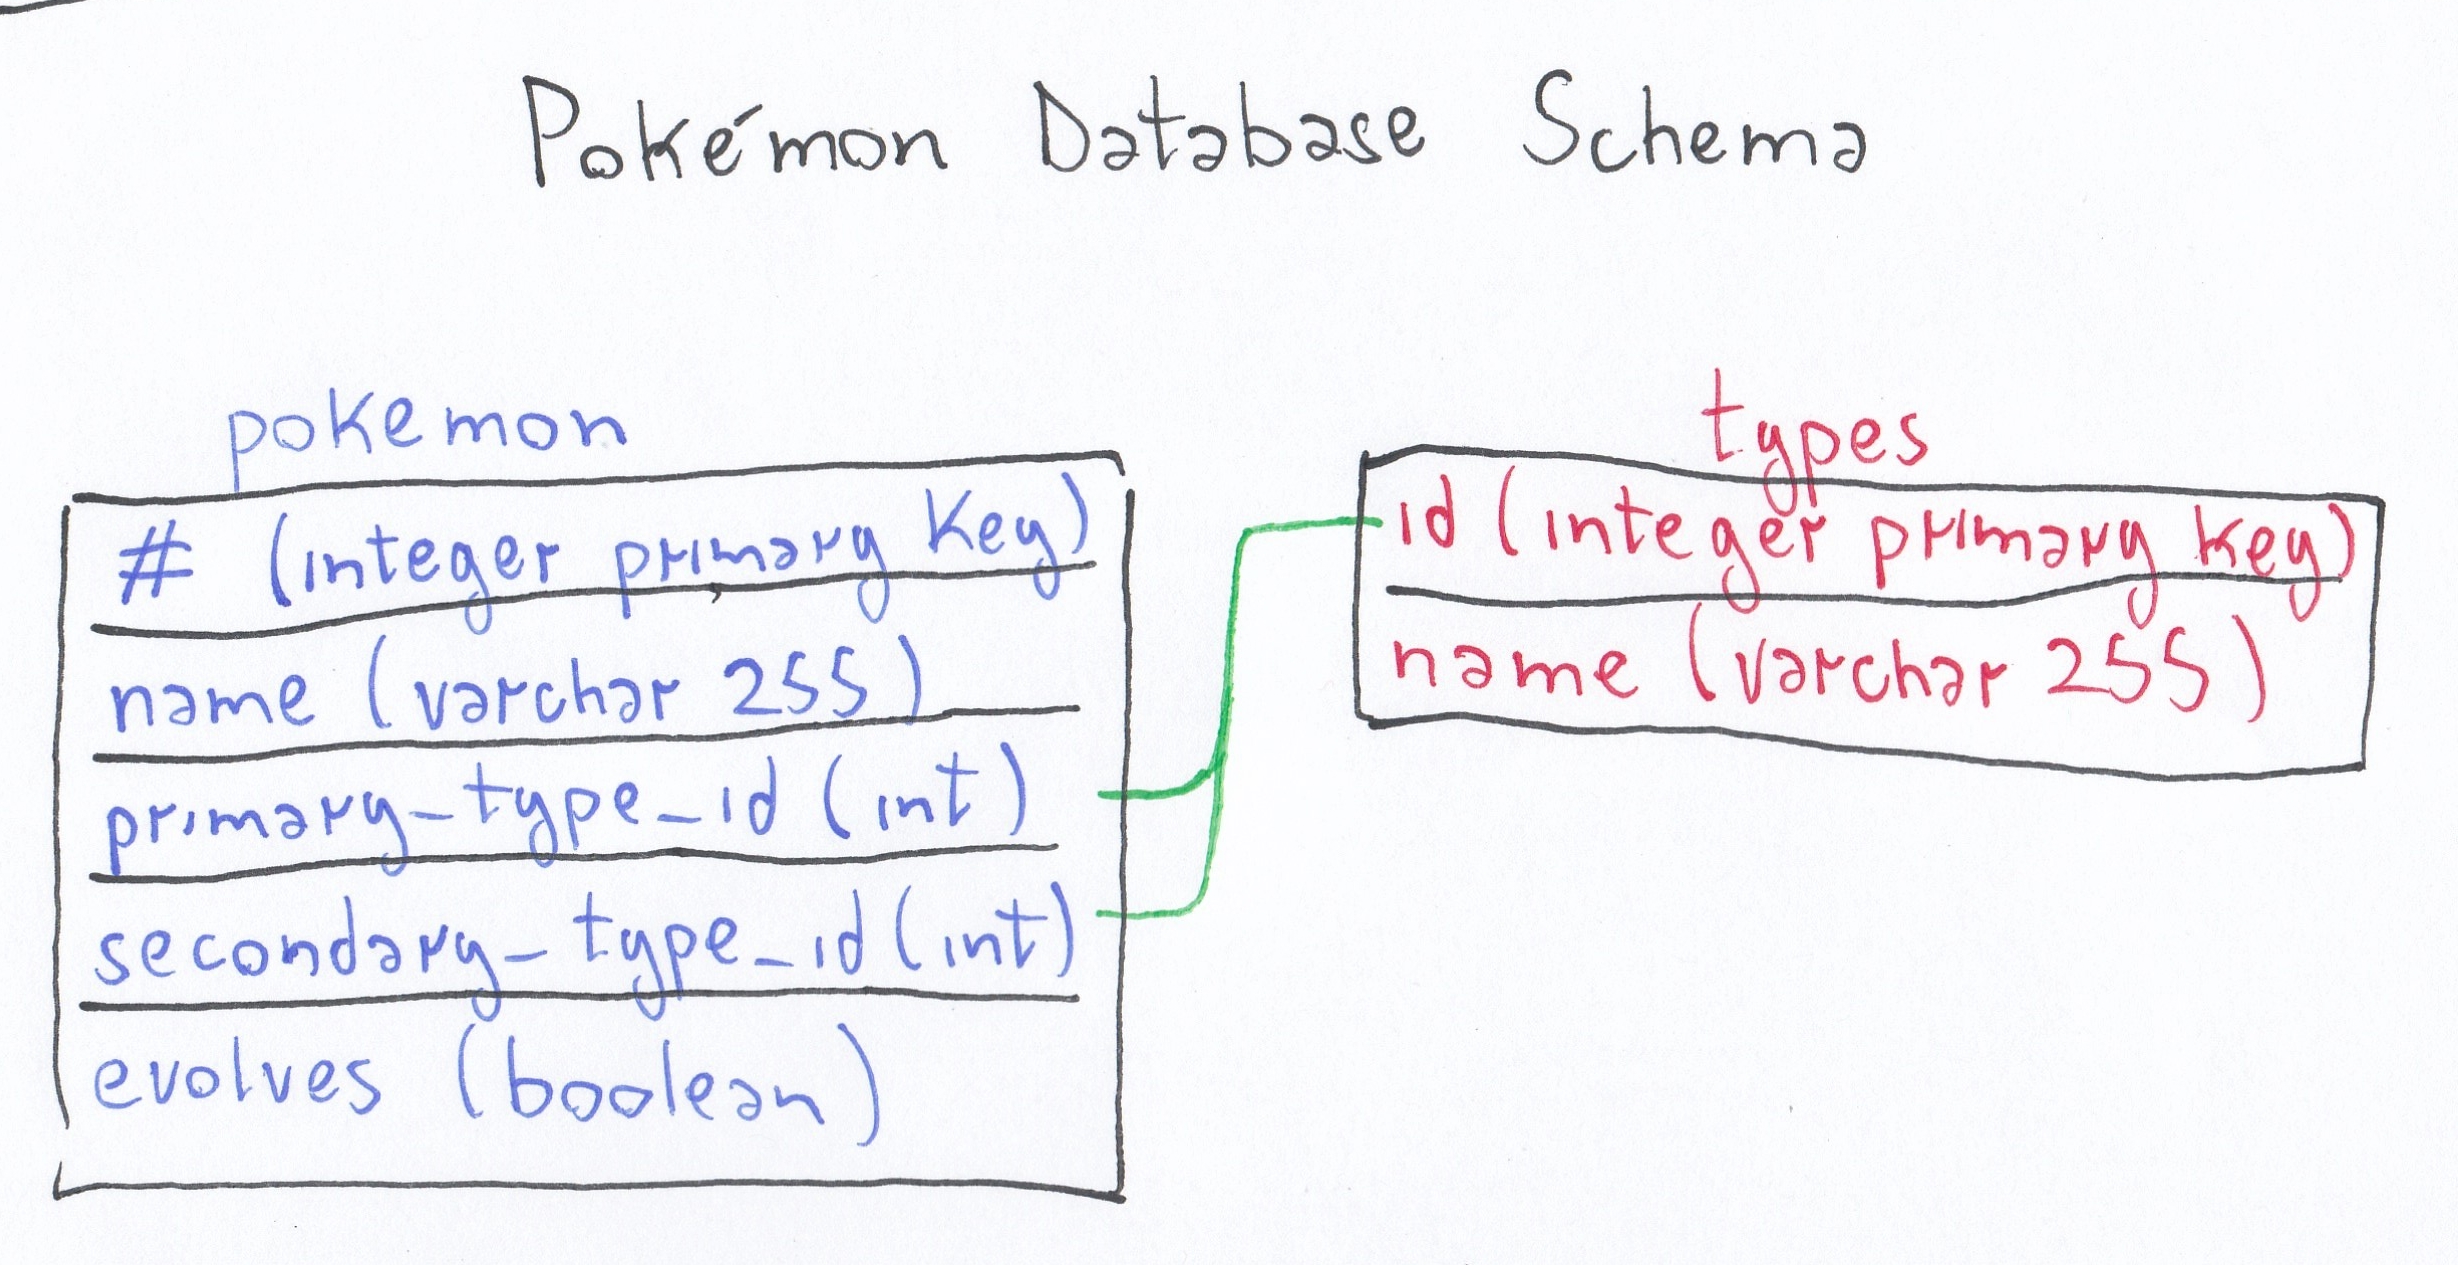 Pokémon Database Schema
pokemon
# (integer primary key)
name (varchar 255)
primary_type_id (int)
secondary_type_id (int)
evolves (boolean)
types
id (integer primary key)
name (varchar 255)